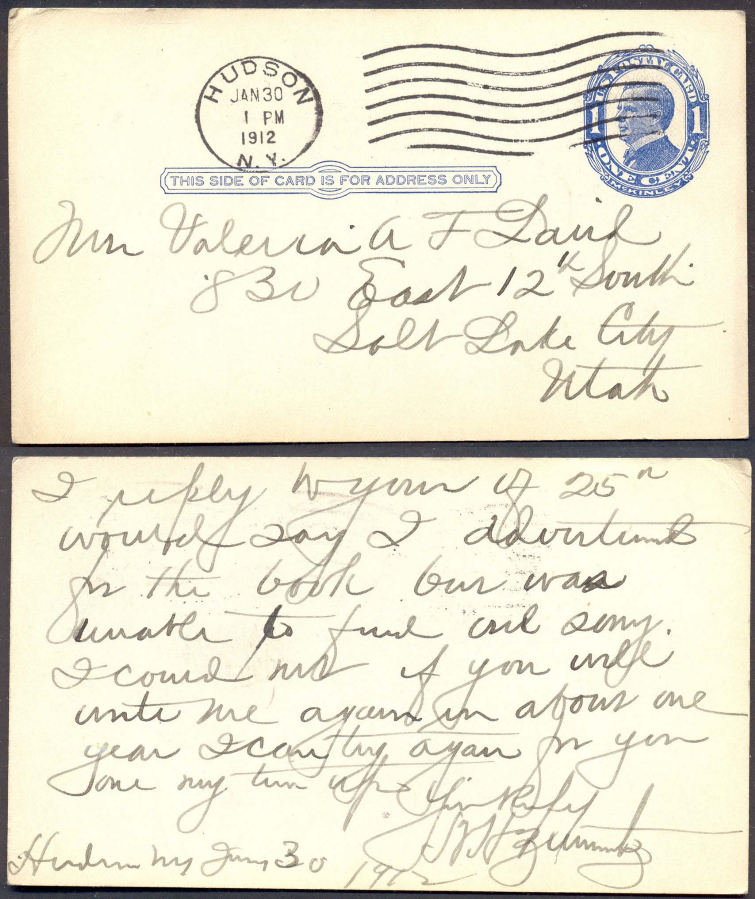 HUDSON
JAN 30
1 PM
1912
N. Y.
U.S. POSTAL CARD
1 1
ONE CENT
McKINLEY
THIS SIDE OF CARD IS FOR ADDRESS ONLY
A F Laird
830 East 12th South
Salt Lake City
Utah
I reply to yours of 25th
would say I advertised
for the book but was
unable to find one sorry
I could not if you will
write me again in about one
year I can try again for you
one may turn up
Hudson NY Jany 30
1912